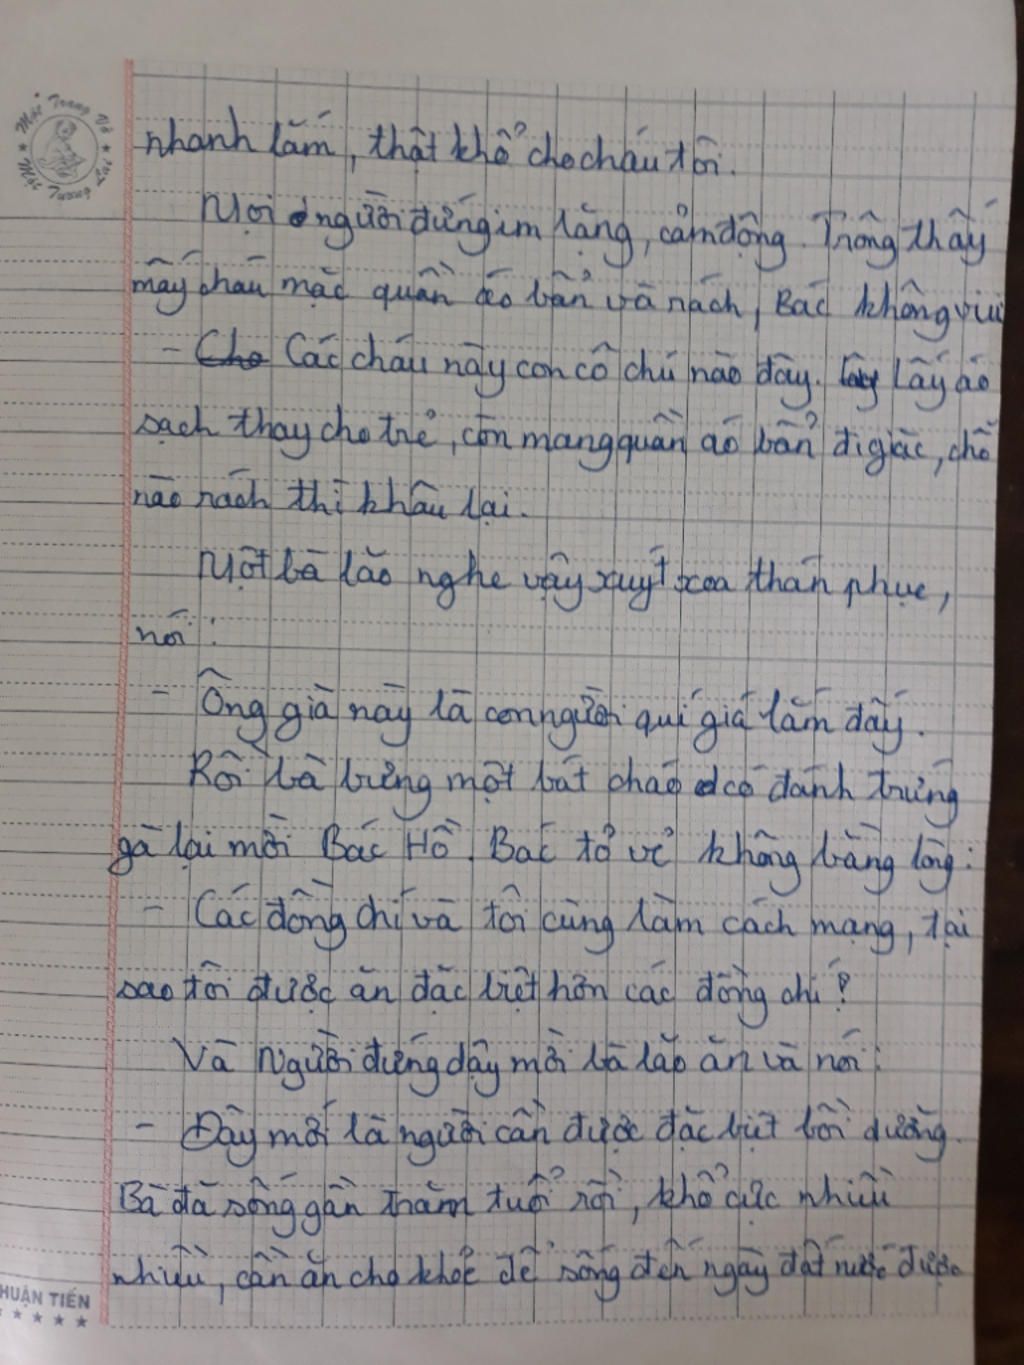 Một Trang Vở
Một Tương Lai
nhanh lắm, thật khổ cho cháu tôi.
Mọi người đứng im lặng, cảm động. Trông thấy
mấy cháu mặc quần áo bẩn và rách, Bác không vui
- Cho Các cháu này con cô chú nào đây. Lấy áo
sạch thay cho trẻ, còn mang quần áo bẩn đi giặc, chỗ
nào rách thì khâu lại.
Một bà lão nghe vậy xuýt xoa thán phục,
nói:
- Ông già này là con người quí giá lắm đấy.
Rồi bà bưng một bát cháo có đánh trứng
gà lại mời Bác Hồ. Bác tỏ vẻ không bằng lòng:
- Các đồng chí và tôi cùng làm cách mạng, tại
sao tôi được ăn đặc biệt hơn các đồng chí?
Và Người đứng dậy mời bà lão ăn và nói:
- Đây mới là người cần được đặc biệt bồi dưỡng.
Bà đã sống gần trăm tuổi rồi, khổ cực nhiều
nhiều, cần ăn cho khỏe để sống đến ngày đất nước được
HUẬN TIẾN